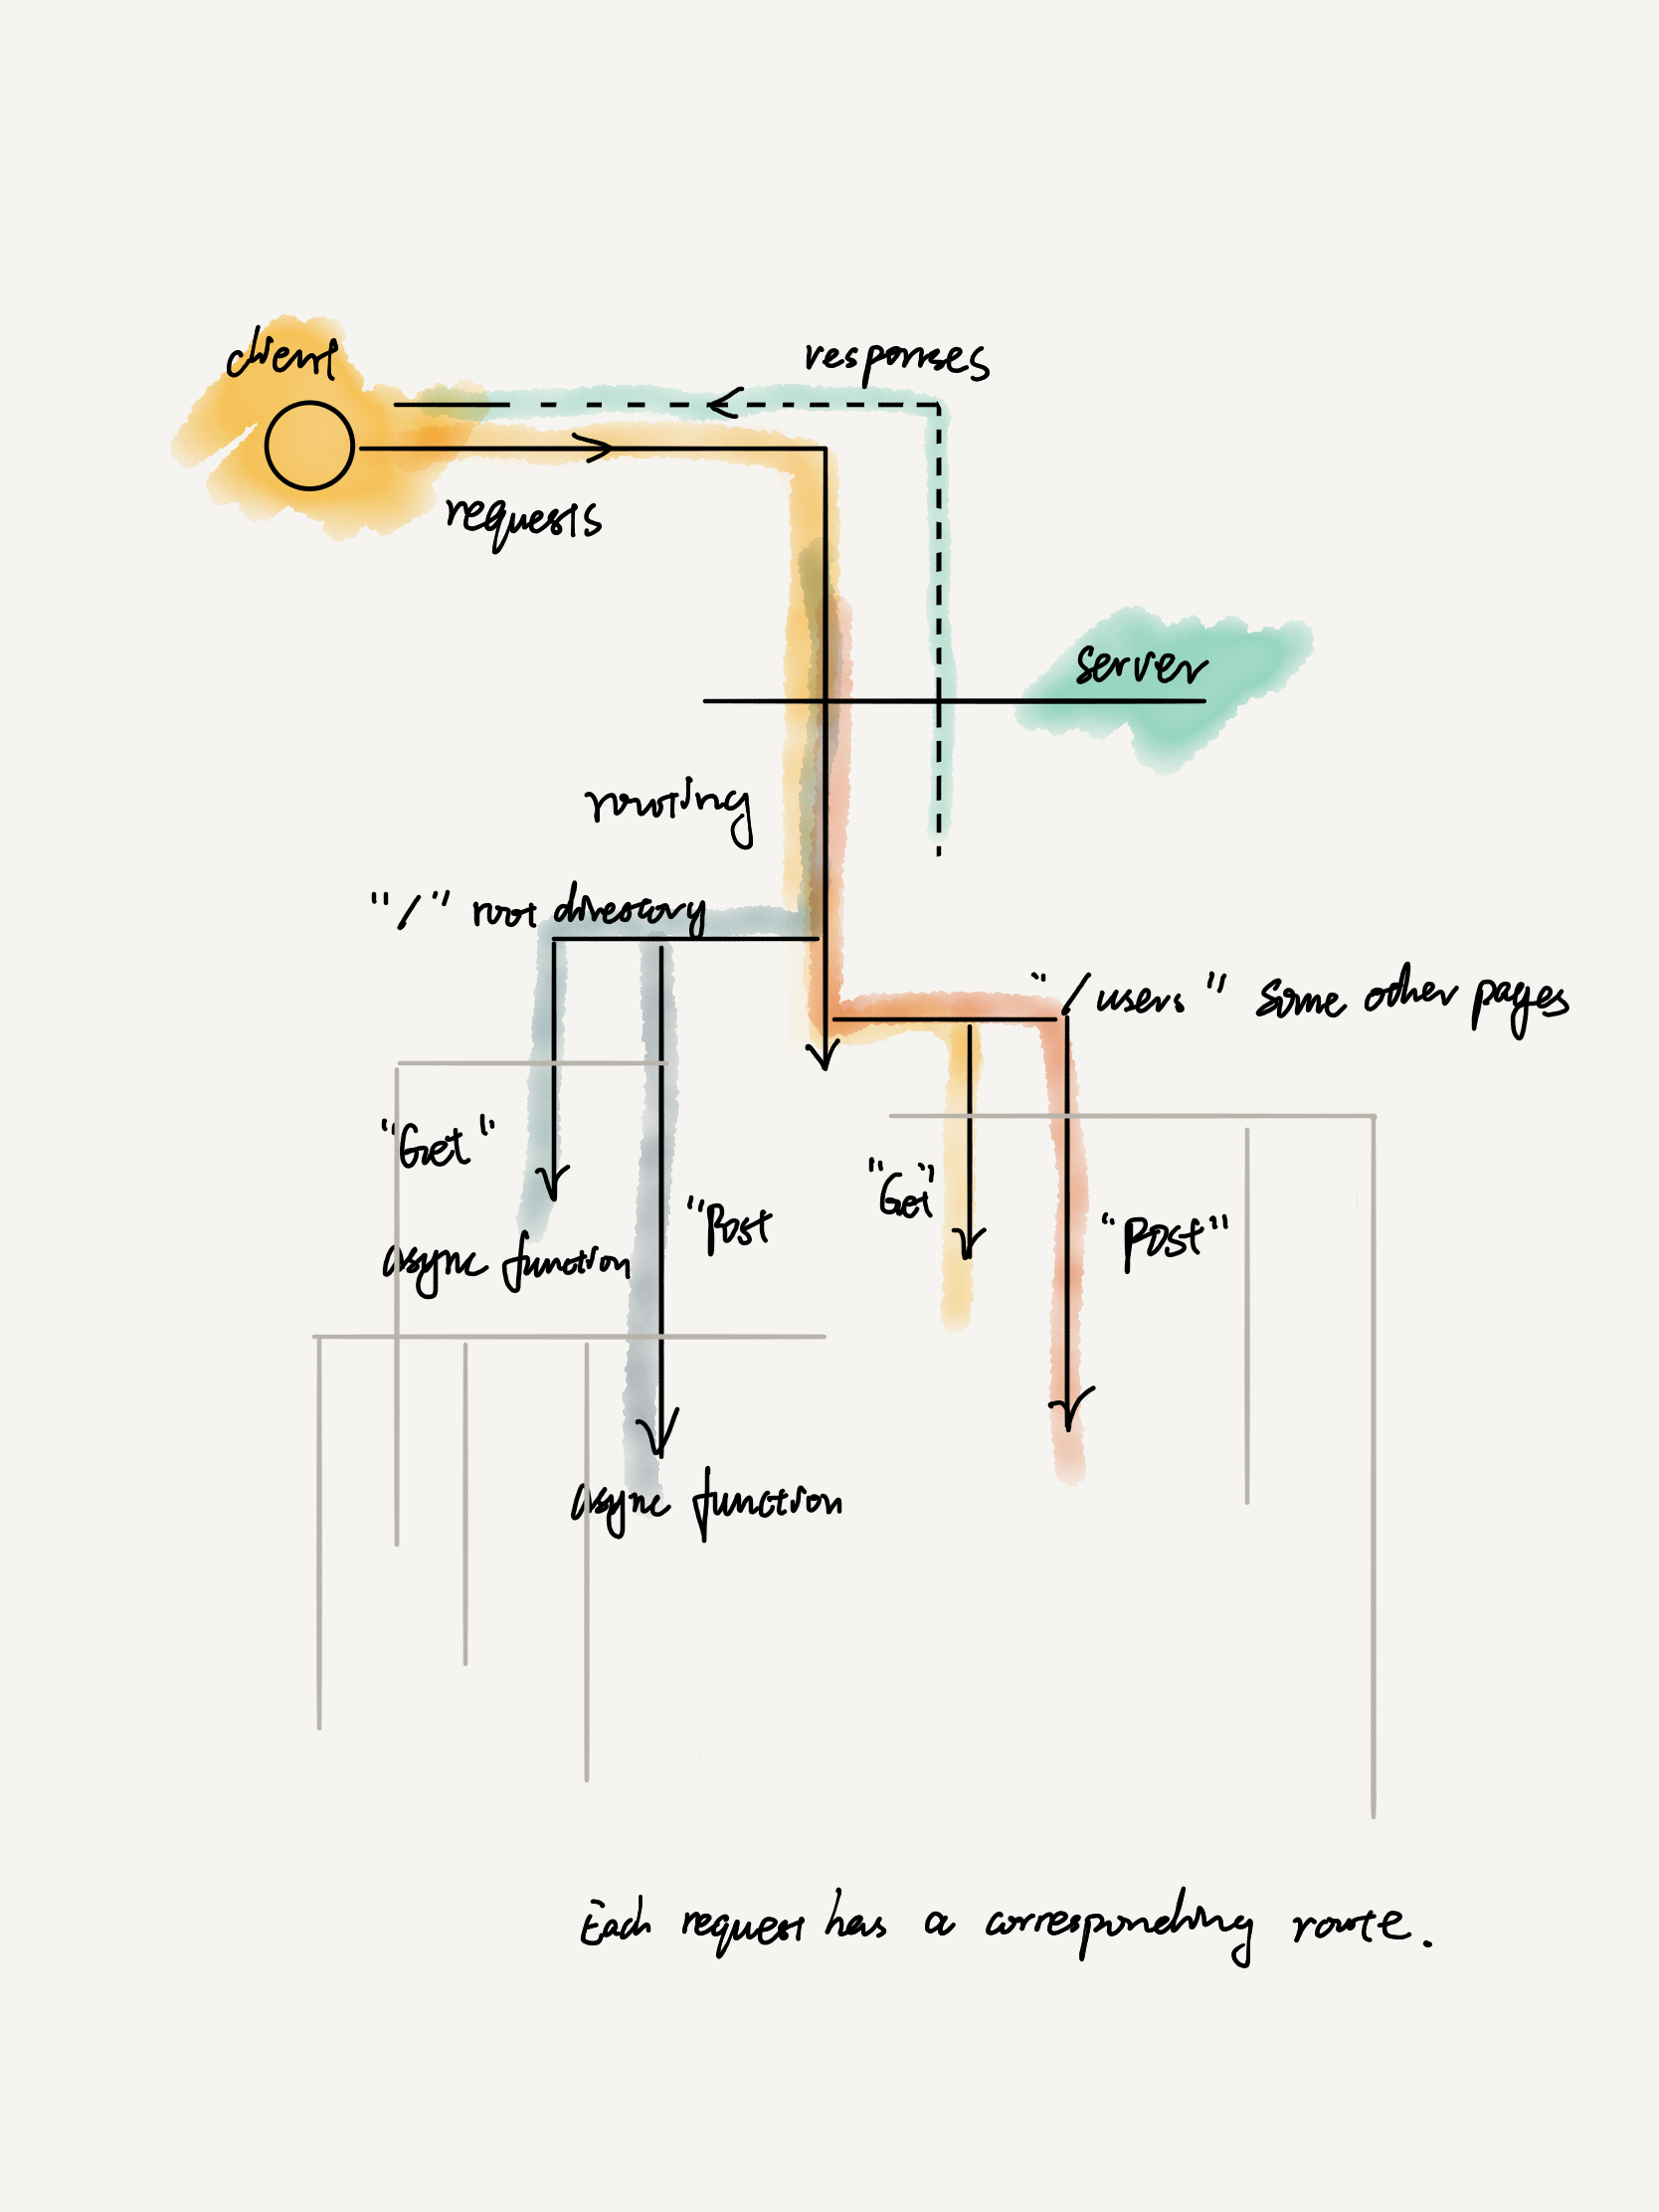 client
responses
requests
server
routing
"/" root directory
"/users" some other pages
"Get"
"Post
"Get"
"Post"
async function
async function
Each request has a corresponding route.